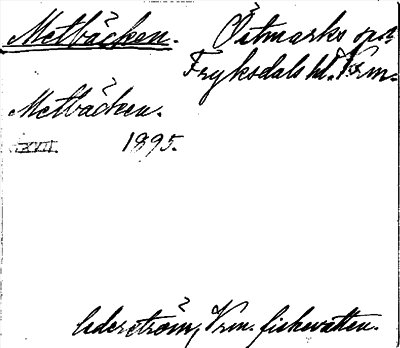 Metbäcken. Östmarks sn
Fryksdals hd. Vrm.
Metbäcken.
XVII. 1895.
Cederström, Vrm. fiskevatten.